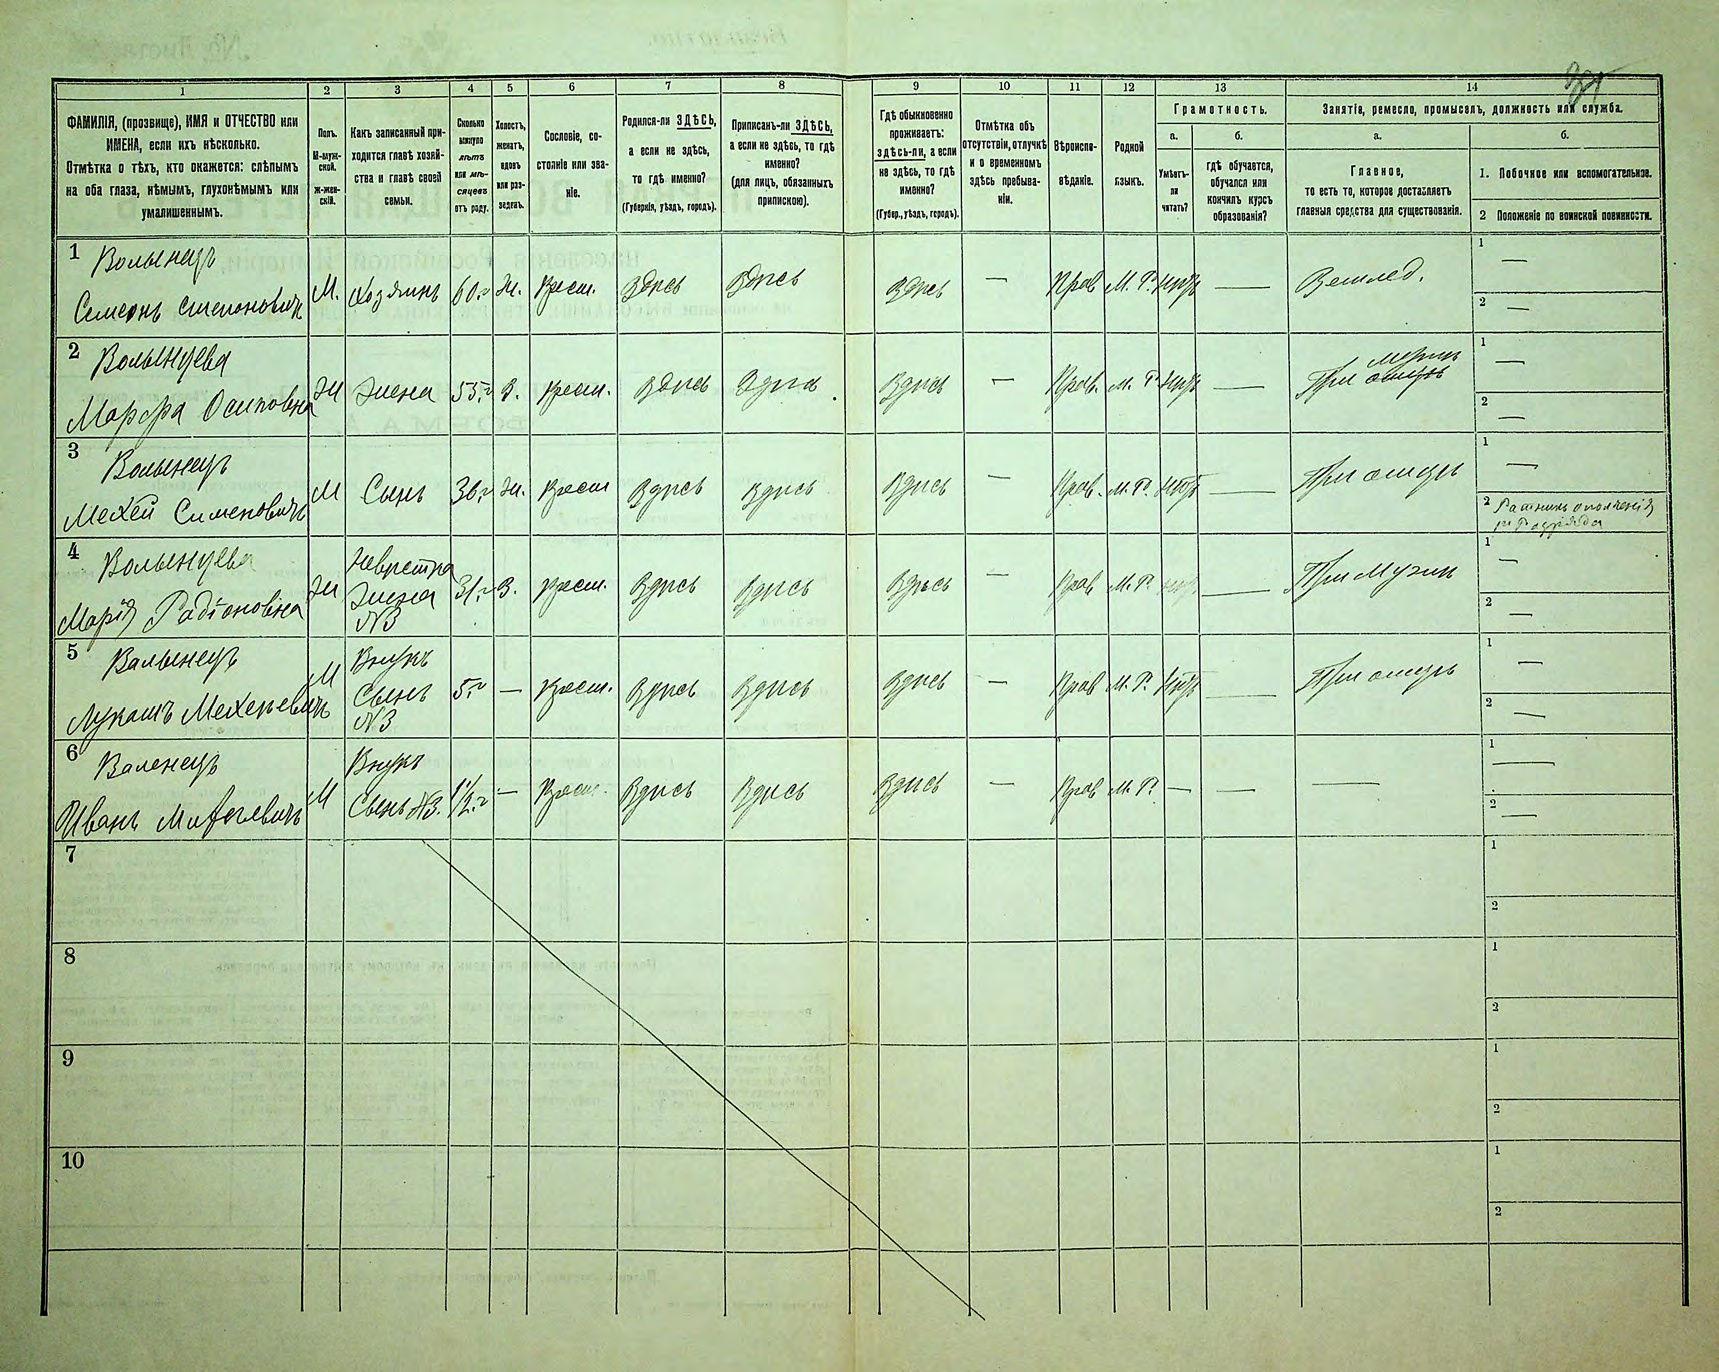 1 2 3 4 5 6 7 8 9 10 11 12 13 14
ФАМИЛІЯ, (прозвище), ИМЯ и ОТЧЕСТВО или
ИМЕНА, если ихъ нѣсколько.
Отмѣтка о тѣхъ, кто окажется: слѣпымъ
на оба глаза, нѣмымъ, глухонѣмымъ или
умалишеннымъ.
Полъ.
М-муж-
ской.
ж-жен-
скій.
Какъ записанный при-
ходится главѣ хозяй-
ства и главѣ своей
семьи.
Сколько
минуло
лѣтъ
или мѣ-
сяцевъ
отъ роду.
Холостъ,
женатъ,
вдовъ
или раз-
веденъ.
Сословіе, со-
стояніе или зва-
ніе.
Родился-ли ЗДѢСЬ,
а если не здѣсь,
то гдѣ именно?
(Губернія, уѣздъ, городъ).
Приписанъ-ли ЗДѢСЬ,
а если не здѣсь, то гдѣ
именно?
(для лицъ, обязанныхъ
припискою).
Гдѣ обыкновенно
проживаетъ:
здѣсь-ли, а если
не здѣсь, то гдѣ
именно?
(Губер., уѣздъ, городъ).
Отмѣтка объ
отсутствіи, отлучкѣ
и о временномъ
здѣсь пребыва-
ніи.
Вѣроиспо-
вѣданіе.
Родной
языкъ.
Грамотность.
а. б.
Умѣетъ-
ли
читать?
гдѣ обучается,
обучался или
кончилъ курсъ
образованія?
Занятія, ремесло, промыселъ, должность или служба.
а. б.
Главное,
то есть то, которое доставляетъ
главныя средства для существованія.
1. Побочное или вспомогательное.
2 Положеніе по воинской повинности.
1 Волынецъ
Семеонъ Степоновичъ М. Хозяинъ 60 г Ж. Крест. Здись Здись Здись — Прав М. Р. нитъ — Земилед. 1 — 2 —
2 Волынцева
Марфа Осиповна Ж Жена 55 г З. крест. Здись Здись Здись — Прав. М. Р. нитъ При мужи 1 — 2 —
3 Волынецъ
Мехей Сименовичъ М Сынъ 30 г Ж. крест Здись Здись Здись — Прав. М. Р. нитъ — При отцу 1 — 2 Ратникъ ополченія
Разряда
4 Волынцева
Марія Радіоновна Ж Невѣстка
Жена
N3 31 г З. крест. Здись Здись Здись — Прав М. Р. нит. — При Мужи 1 — 2 —
5 Валынецъ
Лукашъ Мехеневичъ М Внукъ
Сынъ
N3 5 г — крест. Здись Здись Здись — Прав М. Р. нитъ — При отцу 1 — 2 —
6 Валенецъ
Иванъ М Внукъ
Сынъ N3. 1½ г — Крест. Здись Здись Здись — Прав М. Р. — — — 1 — 2 —
7 1 2
8 1 2
9 1 2
10 1 2